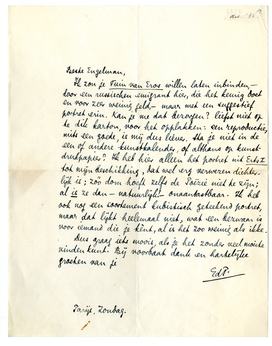 Beste Engelman,
Ik zou je Tuin van Eros willen laten inbinden-
door een russischen emigrant hier, die het keurig doet
en voor zeer weinig geld - maar met een suggestief
portret erin. Kan je me dat bezorgen? Liefst niet op
te dik karton, voor het opplakken: een reproductie,
mits een goede, is mij dus liever. Sta je niet in de
een of andere kunstkalender, of althans op kunst-
drukpapier? Ik heb hier alleen het portret uit
tot mijn beschikking, dat wel erg verwaten dichter-
lijk is; zóó dom hoeft zelfs de Poëzie niet te zijn;
al is ze dan - natuurlijk - onaantastbaar. Ik heb
ook nog een soortement kubistisch geteekend portret,
maar dat lijkt heelemaal niet, wat een bezwaar is
voor iemand die je kènt, al is het zoo weinig als ikke.
Dus graag iets moois, als je het zonder veel moeite
vinden kunt. Bij voorbaat dank en hartelijke
groeten van je
EdP.
Parijs, Zondag.